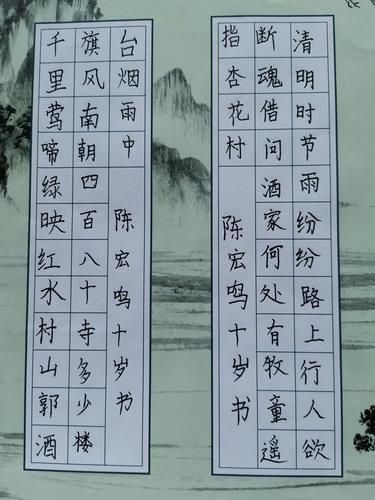 清明时节雨纷纷路上行人欲
断魂借问酒家何处有牧童遥
指杏花村 陈宏鸣十岁书
千里莺啼绿映红水村山郭酒
旗风南朝四百八十寺多少楼
台烟雨中 陈宏鸣十岁书